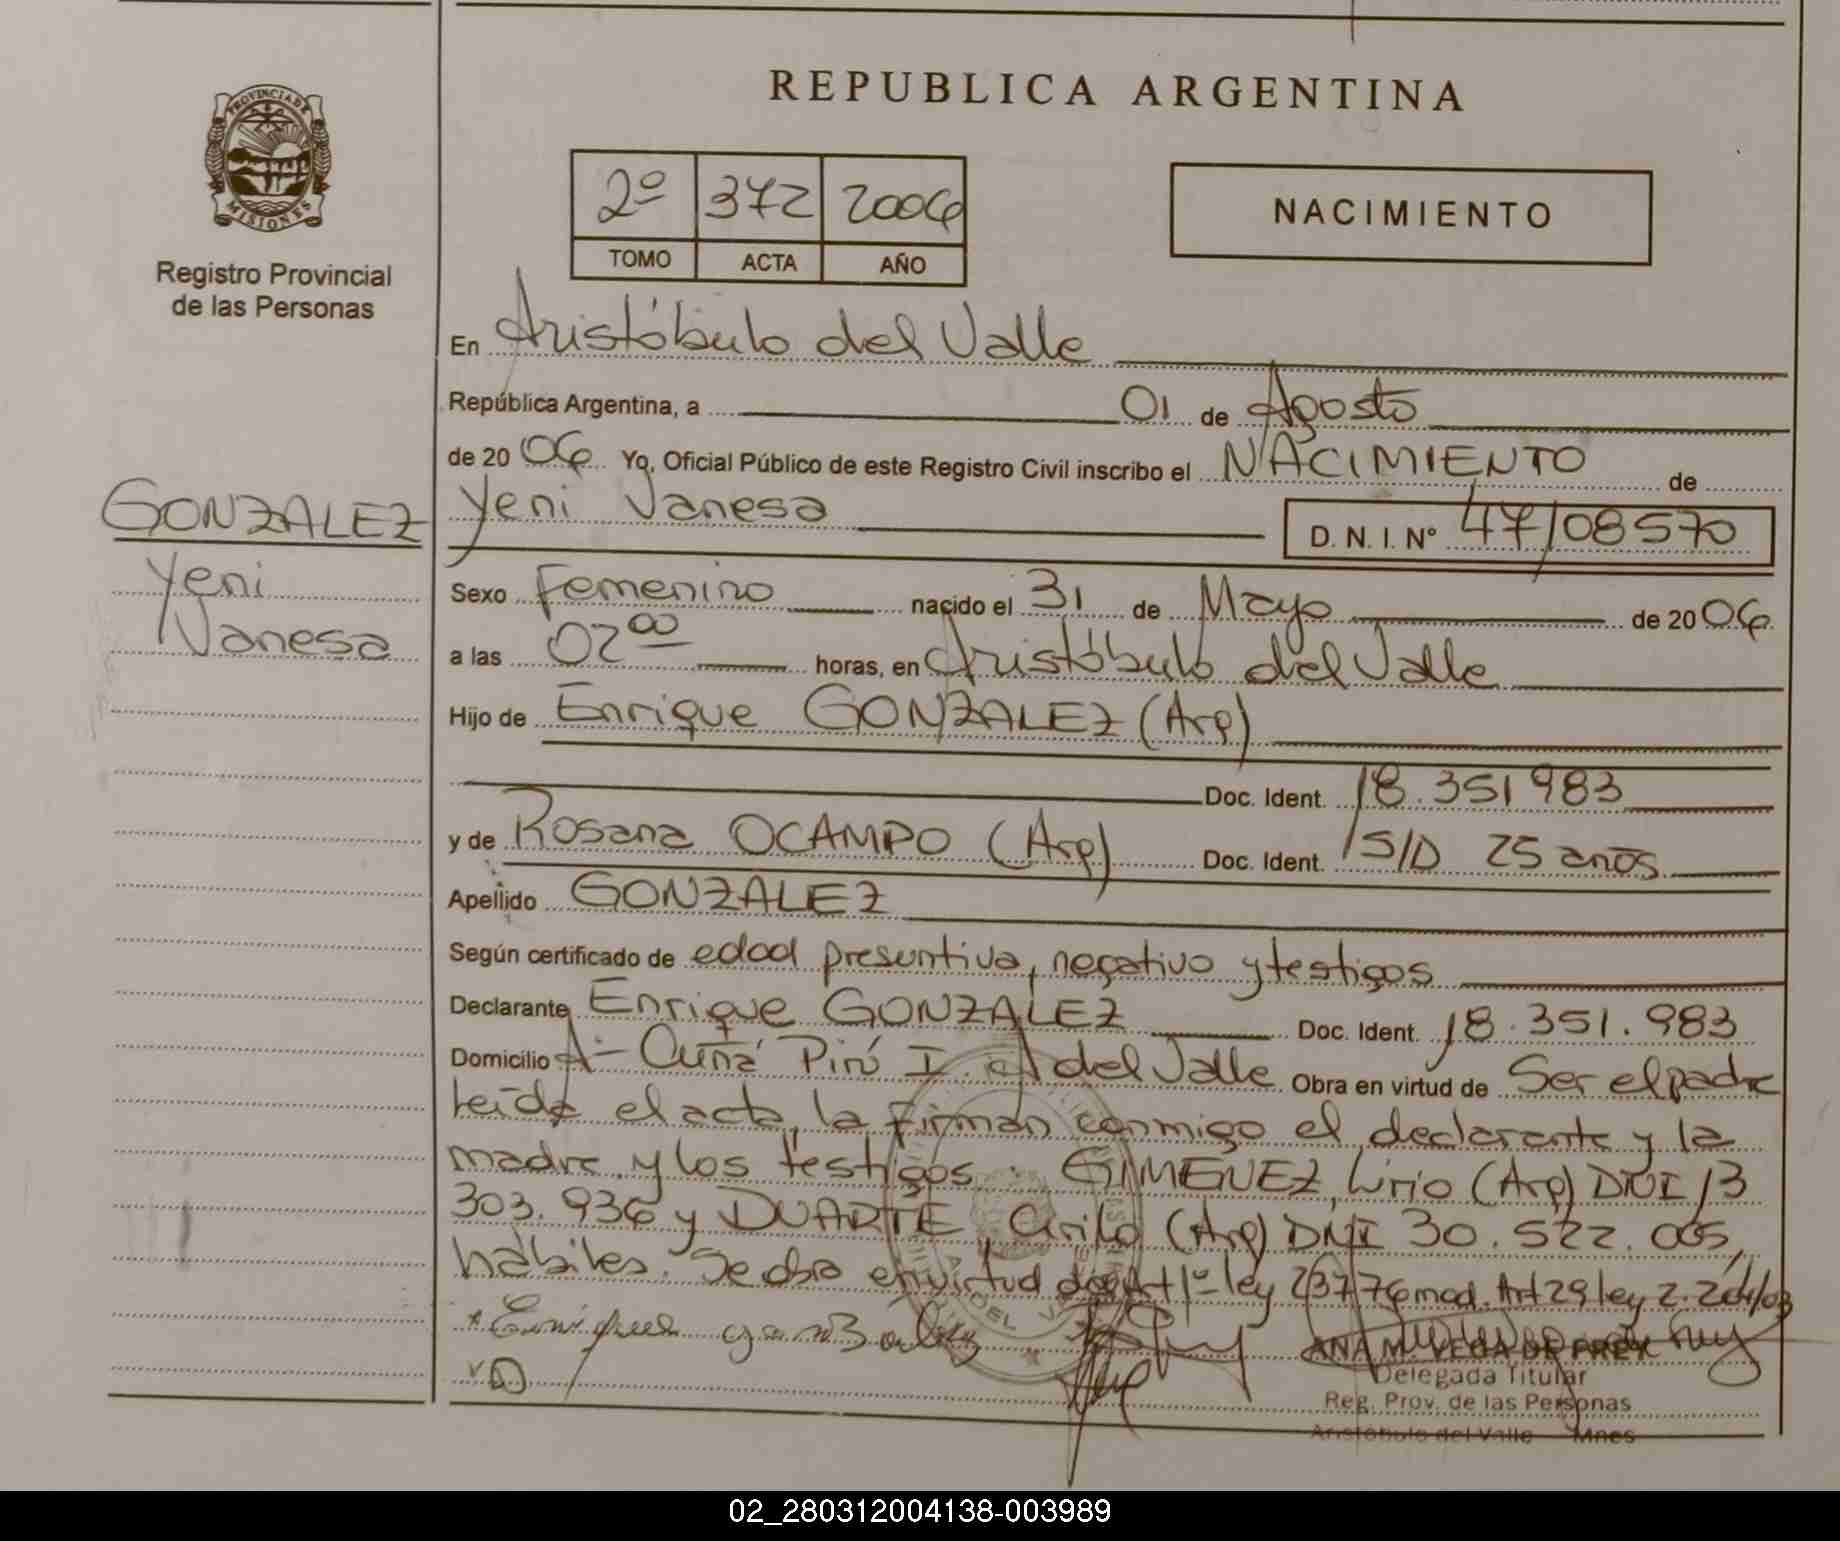 REPUBLICA ARGENTINA
PROVINCIA DE MISIONES
Registro Provincial
de las Personas
2º 372 2006
TOMO ACTA AÑO
NACIMIENTO
En Aristóbulo del Valle
República Argentina, a 01 de Agosto
de 2006 Yo, Oficial Público de este Registro Civil inscribo el NACIMIENTO de
GONZALEZ
Yeni
Vanesa
Yeni Vanesa D. N. I. Nº 47108570
Sexo Femenino nacido el 31 de Mayo de 2006
a las 02 00 horas, en Aristóbulo del Valle
Hijo de Enrique GONZALEZ (Arg)
Doc. Ident. 18.351983
y de Rosana OCAMPO (Arg) Doc. Ident. S/D 25 años
Apellido GONZALEZ
Según certificado de edad presuntiva, negativo y testigos
Declarante Enrique GONZALEZ Doc. Ident. 18.351.983
Domicilio A- Cuñá Pirú I A del Valle Obra en virtud de Ser el padre
leída el acta, la firman conmigo el declarante y la
madre y los testigos. GIMENEZ, Lirio (Arg) DNI 13
303.936 y DUARTE, Cirilo (Arg) DNI 30.522.005,
hábiles. Se obra en virtud del Art 1º ley 23776 mod. Art 29 ley 2.204/03
Enrique gonzalez
ANA M. VEGA DE FREY
Delegada Titular
Reg. Prov. de las Personas
Aristóbulo del Valle Mnes
02_280312004138-003989